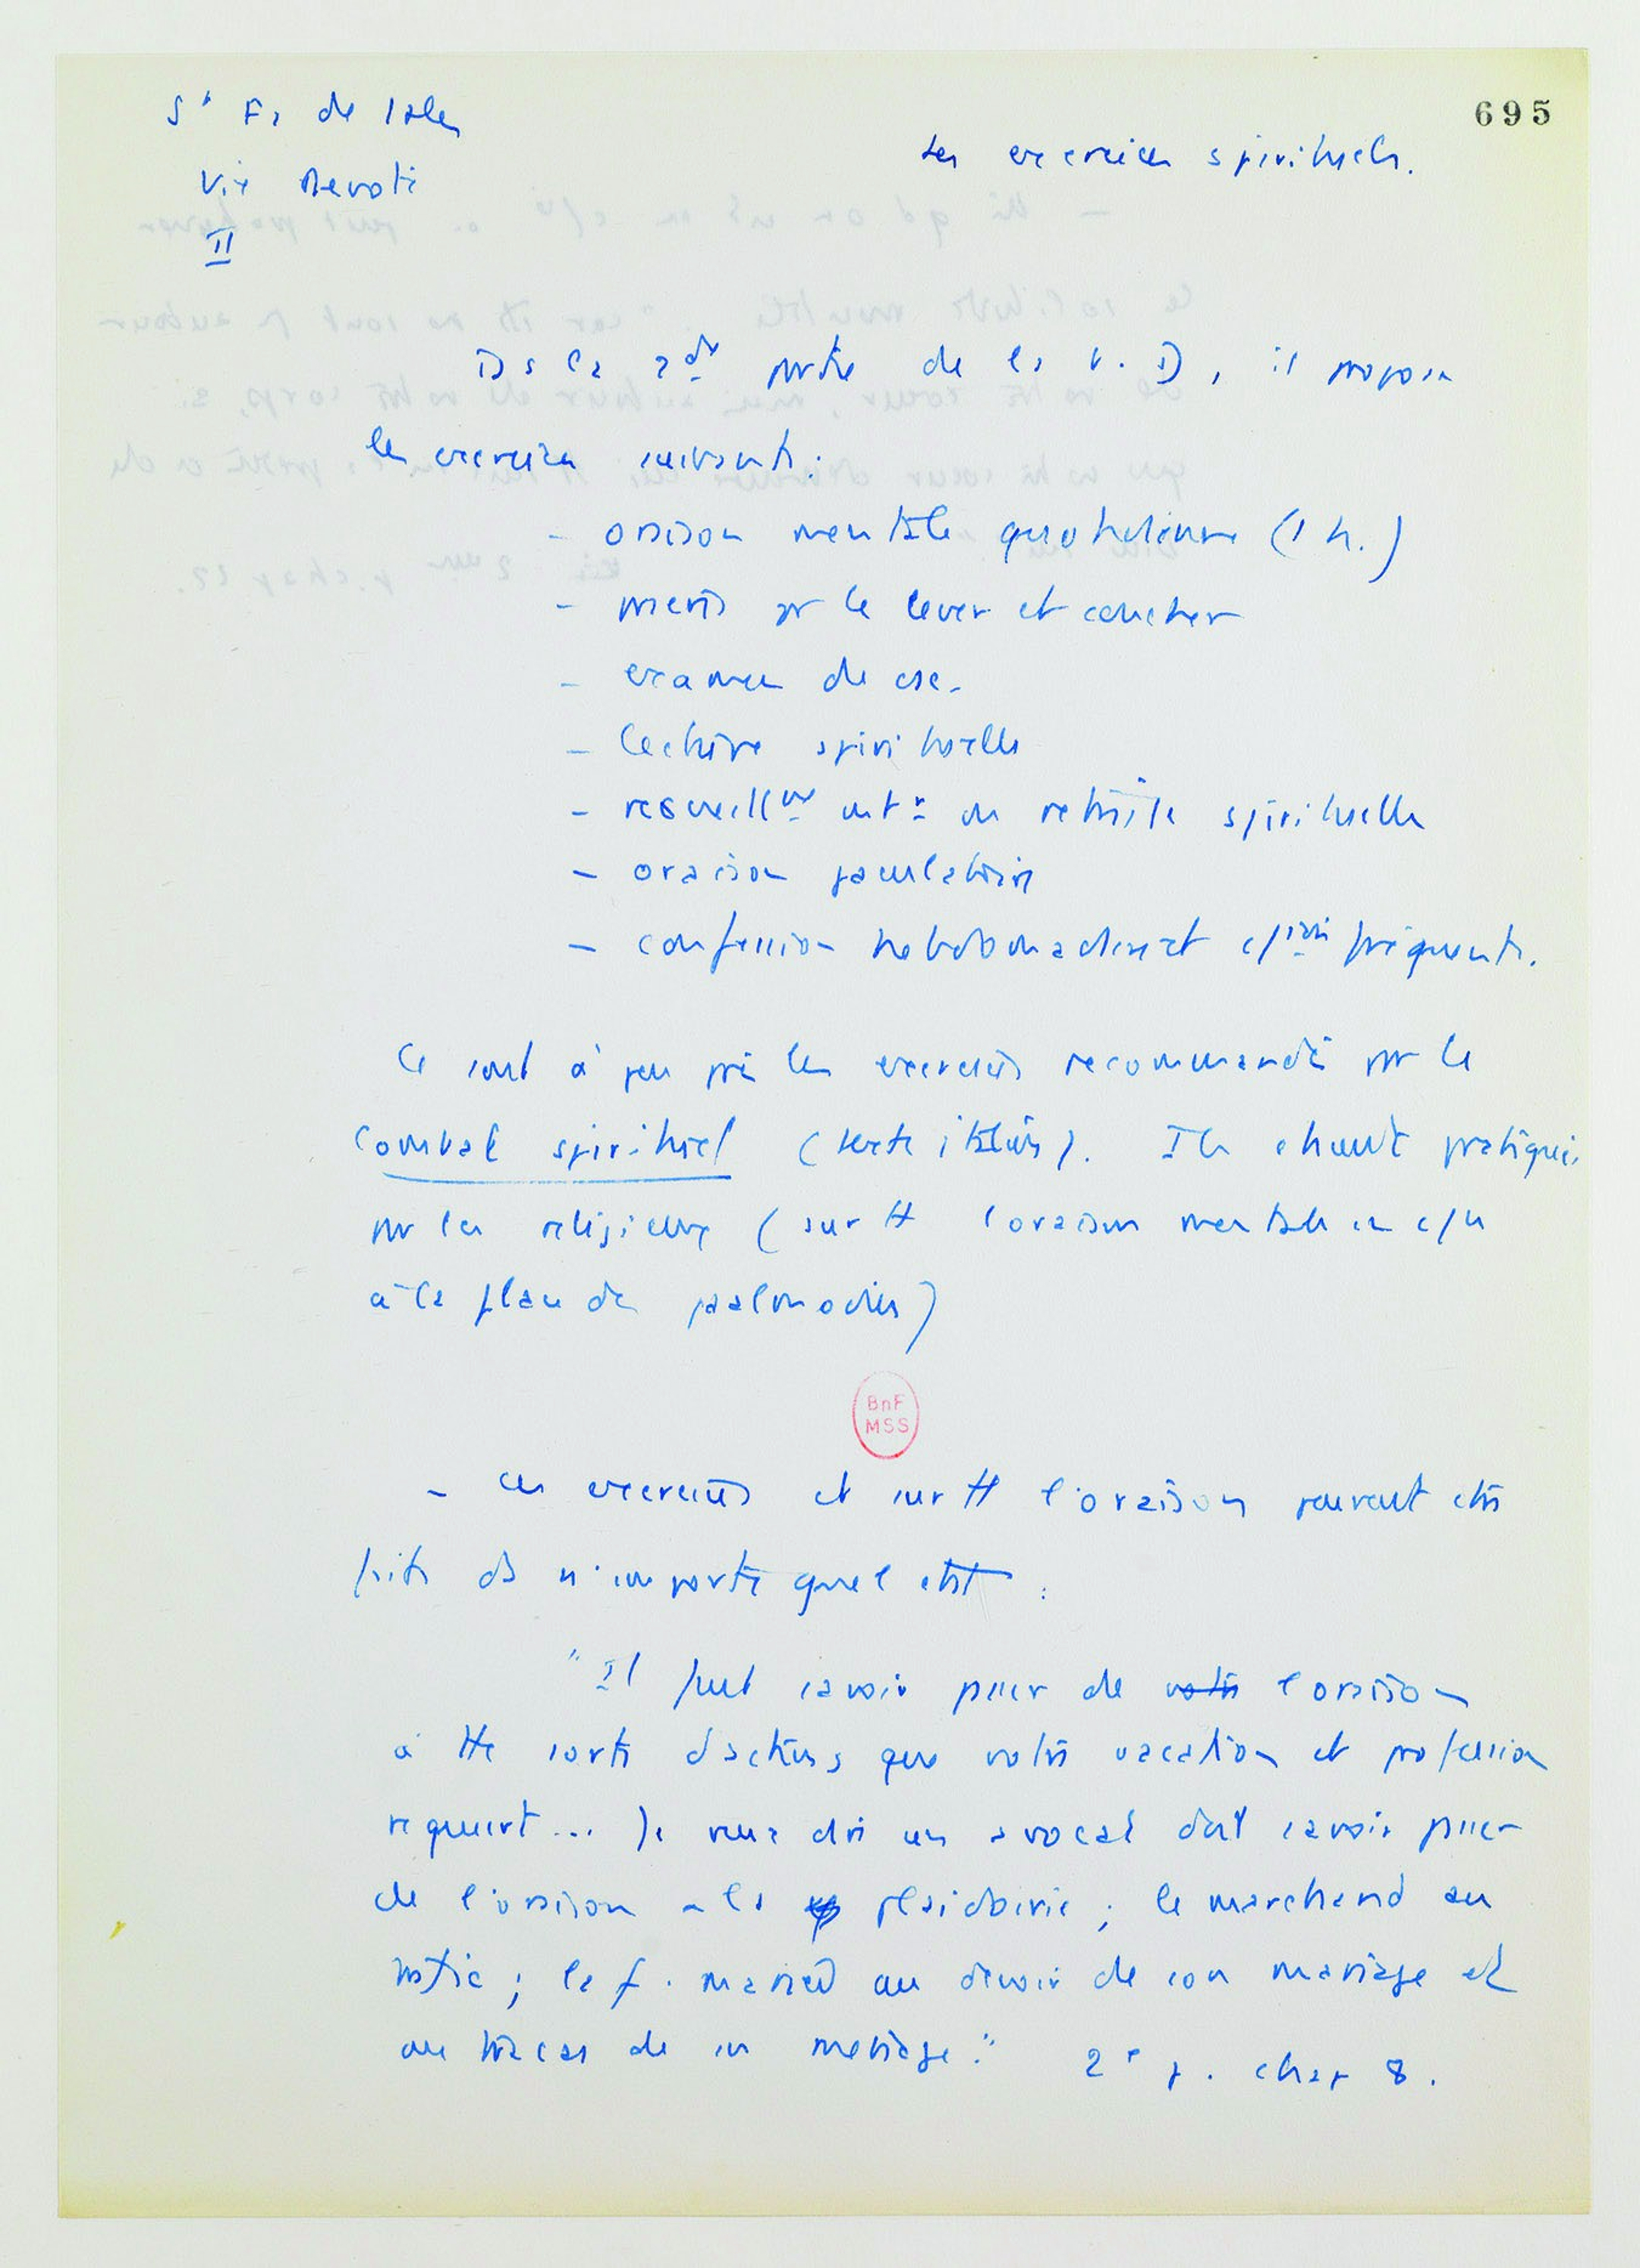 695
St Fr de Sales
Vie Devote
II
Les exercices spirituels.
Ds la 2de partie de la V. D, il propose
les exercices suivants :
- oraison mentale quotidienne (1 h.)
- prières pr le lever et coucher
- examen de csc.
- lecture spirituelle
- recueillmt intr ou retraite spirituelle
- oraison jaculatoire
- confession hebdomadaire et fréquente.
Ce sont à peu près les exercices recommandés par le
Combat spirituel (texte italien). Ils étaient pratiqués
par les religieux (surtt l'oraison mentale en
à la place des psalmodies)
BnF
MSS
- Ces exercices et surtt l'oraison peuvent etre
faits ds n'importe quel état :
"Il faut savoir passer de votre l'oraison
à tte sorte d'actions que votre vacation et profession
requiert... Je veux dire un avocat doit savoir passer
de l'oraison a la plaidoirie ; le marchand au
trafic ; la f. mariée au devoir de son mariage et
au tracas de sn menage." 2e p. chap 8.